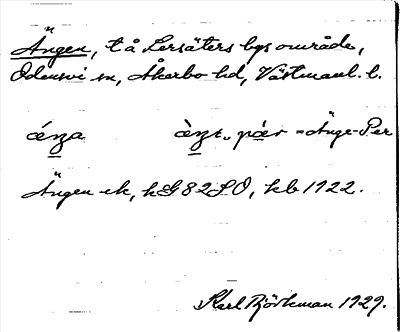 Ängen, t å Lersäters bys område,
Odensvi sn, Åkerbo hd, Västmanl. l.
= Änge-Per
Ängen ek, kG 82 SO, kb 1922.
Karl Björkman 1929.